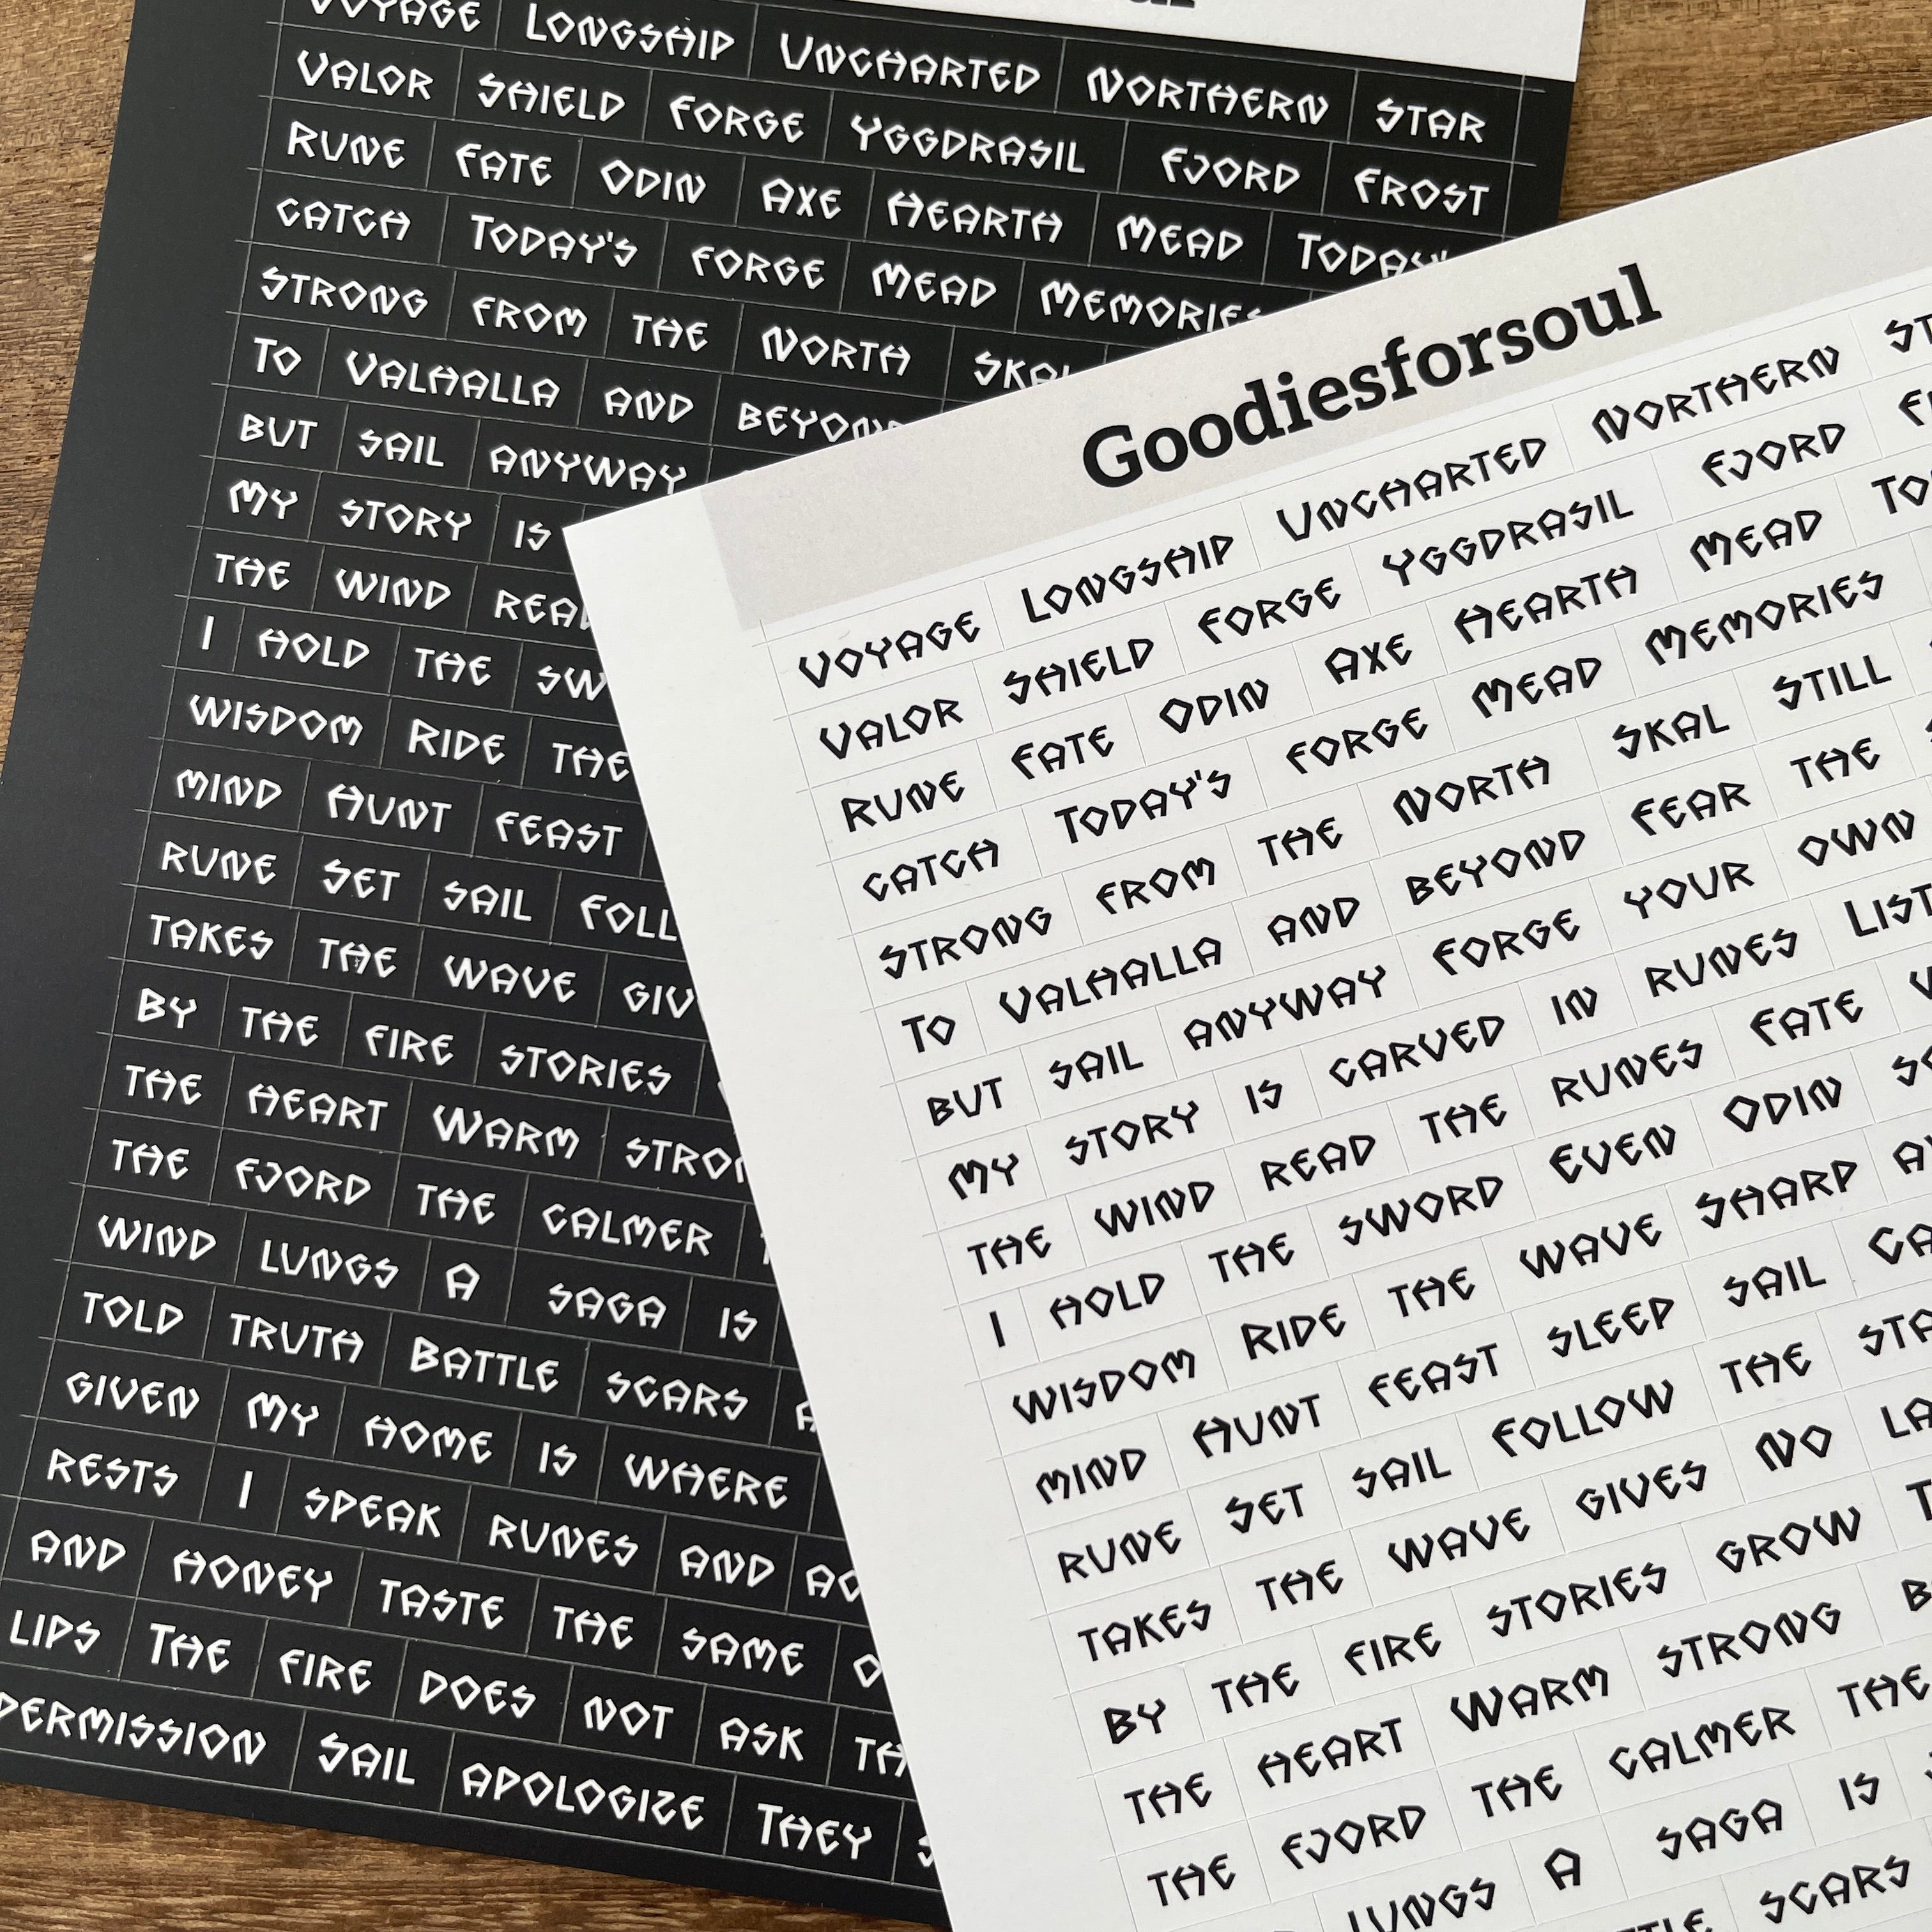 VOYAGE LONGSHIP UNCHARTED NORTHERN STAR
VALOR SHIELD FORGE YGGDRASIL FJORD FROST
RUNE FATE ODIN AXE HEARTH MEAD TODAY'S
CATCH TODAY'S FORGE MEAD MEMORIES
STRONG FROM THE NORTH
TO VALHALLA AND BEYOND
BUT SAIL ANYWAY
MY STORY IS
THE WIND READ
I HOLD THE
WISDOM RIDE THE
MIND HUNT FEAST
RUNE SET SAIL
TAKES THE WAVE
BY THE FIRE STORIES
THE HEART WARM
THE FJORD THE CALMER
WIND LUNGS A SAGA IS
TOLD TRUTH BATTLE SCARS
GIVEN MY HOME IS WHERE
RESTS I SPEAK RUNES AND
AND HONEY TASTE THE SAME
LIPS THE FIRE DOES NOT ASK
PERMISSION SAIL APOLOGIZE THEY
Goodiesforsoul
VOYAGE LONGSHIP UNCHARTED NORTHERN
VALOR SHIELD FORGE YGGDRASIL FJORD
RUNE FATE ODIN AXE HEARTH MEAD
CATCH TODAY'S FORGE MEAD MEMORIES
STRONG FROM THE NORTH SKAL STILL
TO VALHALLA AND BEYOND FEAR THE
BUT SAIL ANYWAY FORGE YOUR OWN
MY STORY IS CARVED IN RUNES
THE WIND READ THE RUNES FATE
I HOLD THE SWORD EVEN ODIN
WISDOM RIDE THE WAVE SHARP
MIND HUNT FEAST SLEEP SAIL
RUNE SET SAIL FOLLOW THE
TAKES THE WAVE GIVES NO
BY THE FIRE STORIES GROW
THE HEART WARM STRONG
THE FJORD THE CALMER THE
LUNGS A SAGA IS
SCARS